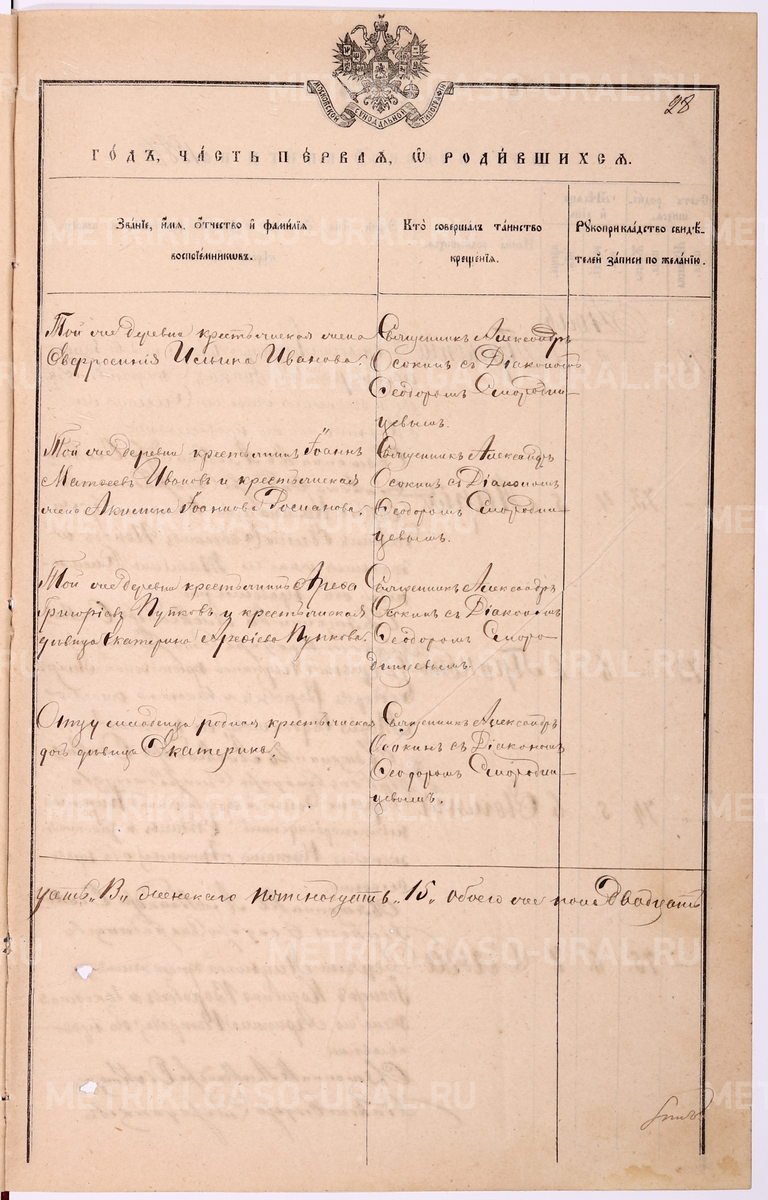 МОСКОВСКОЙ СѴНОДАЛЬНОЙ ТИПОГРАФІИ
28
ГОДЪ, ЧАСТЬ ПЕРВАЯ, Ѡ РОДИВШИХСЯ.
Званіе, имя, отчество и фамилія
воспріемниковъ.
Кто совершалъ таинство
крещенія.
Рукоприкладство свидѣ-
телей записи по желанію.
Той же деревни крестьянская жена
Евфросинія Ильина Иванова.
Священникъ Александръ
Осокинъ съ Діакономъ
Ѳеодоромъ Смородин-
цевымъ.
Той же деревни крестьянинъ Іоаннъ
Матѳеевъ Ивановъ и крестьянская
жена Акилина Іоаннова
Священникъ Александръ
Осокинъ съ Діакономъ
Ѳеодоромъ Смородин-
цевымъ.
Той же деревни крестьянинъ Арефа
Григоріевъ Пупковъ и крестьянская
дѣвица Екатерина Арефіева Пупкова.
Священникъ Александръ
Осокинъ съ Діакономъ
Ѳеодоромъ Сморо-
динцевымъ.
Отцу младенца родная крестьянская
дочь дѣвица Екатерина.
Священникъ Александръ
Осокинъ съ Діакономъ
Ѳеодоромъ Смородин-
цевымъ.
цать „13„ женскаго пятнадцать „15„ обоего же пола Двадцать
METRIKI.GASO-URAL.RU